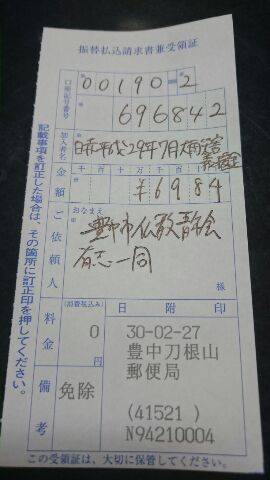 振替払込請求書兼受領証
口座記号番号
00190-2
696842
加入者名
日赤平成29年7月大雨災害
義援金
金額
千 百 十 万 千 百 十 円
¥6984
ご依頼人
おなまえ
豊中市仏教青年会
有志一同
様
料金
(消費税込み)
0
円
日附印
30-02-27
豊中刀根山
郵便局
(41521)
N94210004
備考
免除
記載事項を訂正した場合は、その箇所に訂正印を押してください。
この受領証は、大切に保管してください。